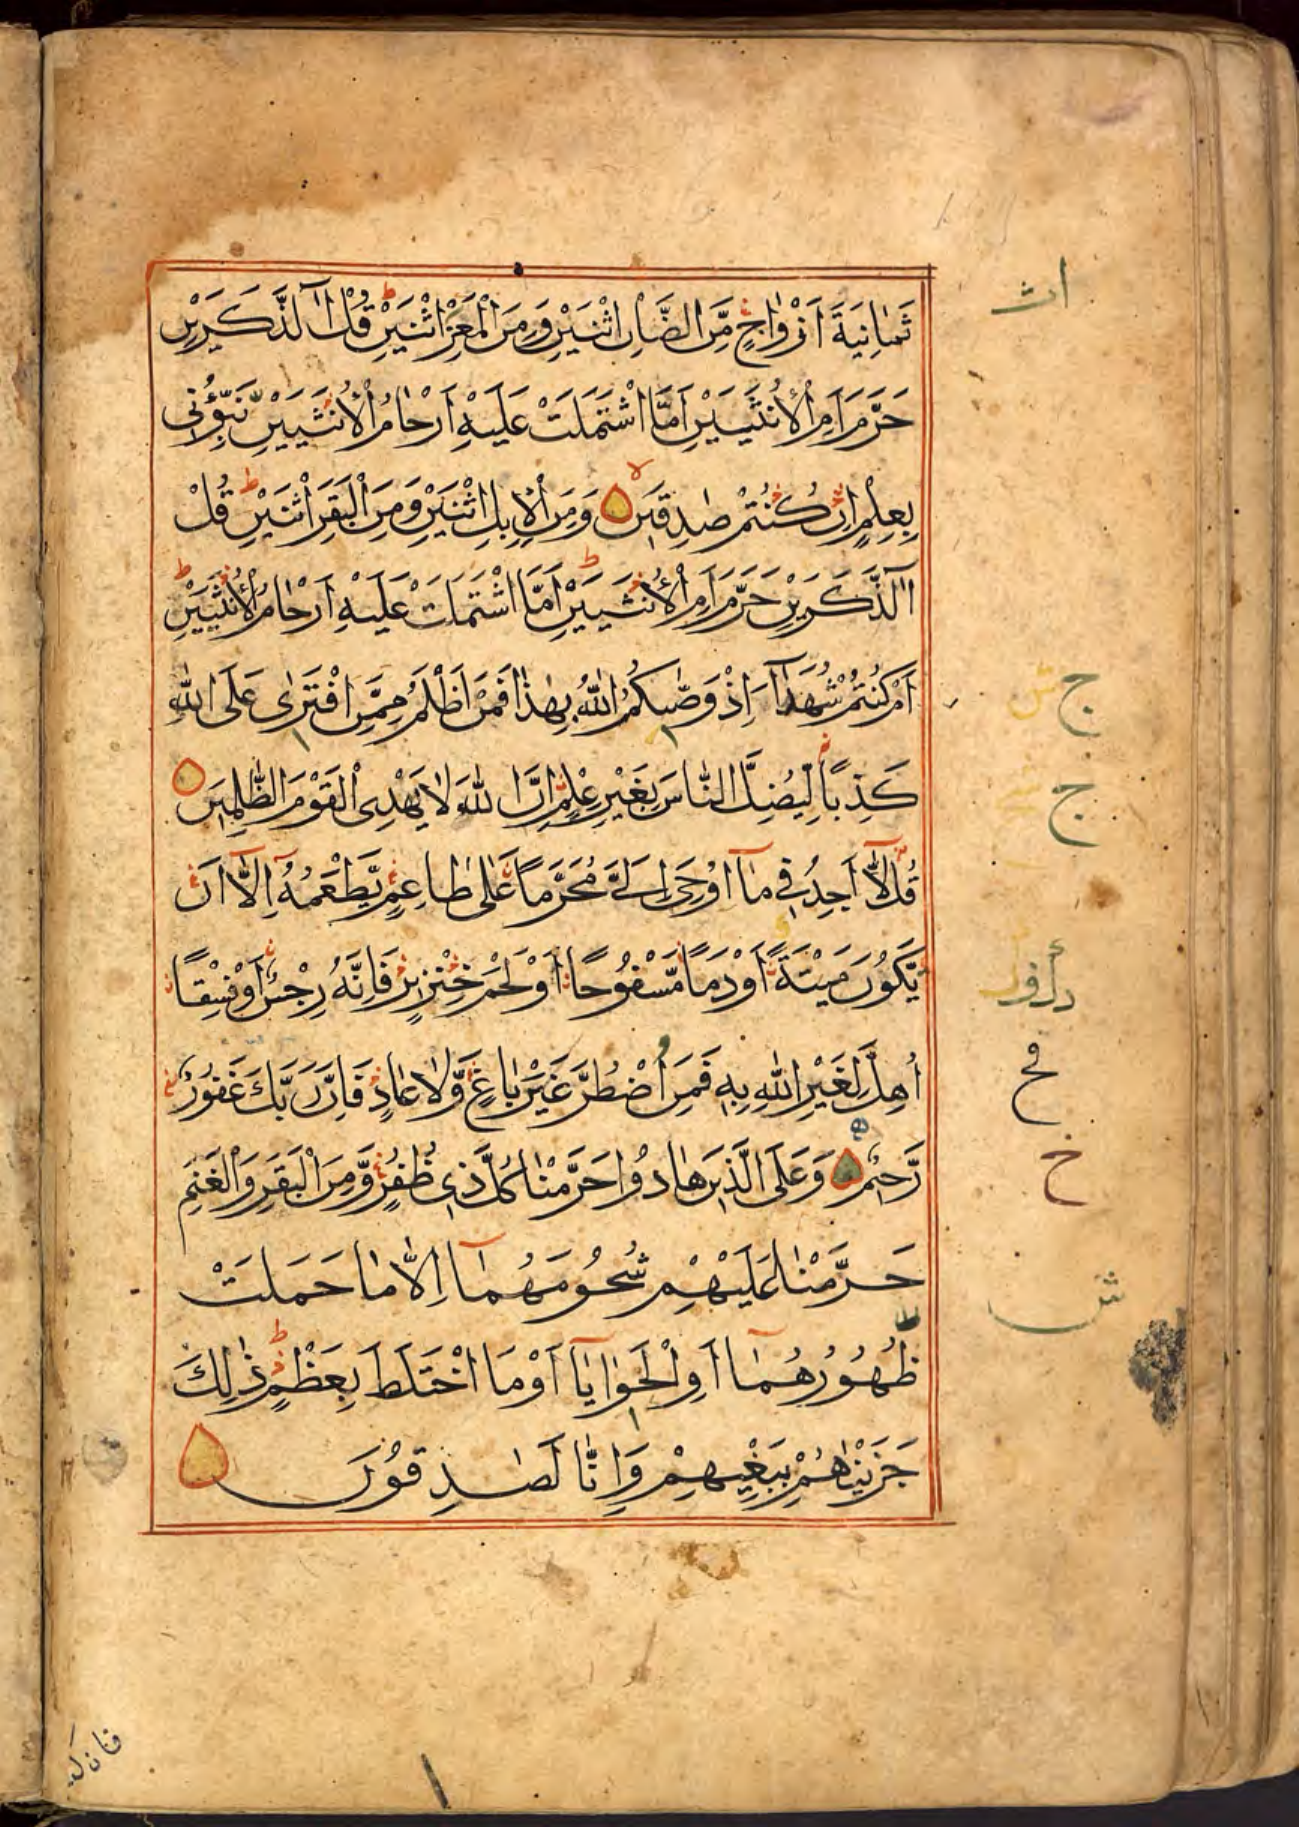 ثَمَانِيَةَ اَزْوَاجٍ مِّنَ الضَّاْنِ اثْنَيْنِ وَمِنَ الْمَعْزِ اثْنَيْنِ ط قُلْ آٰلذَّكَرَيْنِ
حَرَّمَ اَمِ الْاُنْثَيَيْنِ اَمَّا اشْتَمَلَتْ عَلَيْهِ اَرْحَامُ الْاُنْثَيَيْنِ نَبِّؤُنِى
بِعِلْمٍ اِنْ كُنْتُمْ صٰدِقِيْنَ لا وَمِنَ الْاِبِلِ اثْنَيْنِ وَمِنَ الْبَقَرِ اثْنَيْنِ ط قُلْ
آٰلذَّكَرَيْنِ حَرَّمَ اَمِ الْاُنْثَيَيْنِ ط اَمَّا اشْتَمَلَتْ عَلَيْهِ اَرْحَامُ الْاُنْثَيَيْنِ ط
اَمْ كُنْتُمْ شُهَدَآءَ اِذْ وَصّٰىكُمُ اللّٰهُ بِهٰذَا فَمَنْ اَظْلَمُ مِمَّنِ افْتَرٰى عَلَى اللّٰهِ
كَذِبًا لِّيُضِلَّ النَّاسَ بِغَيْرِ عِلْمٍ اِنَّ اللّٰهَ لَا يَهْدِى الْقَوْمَ الظّٰلِمِيْنَ
قُلْ لَّآ اَجِدُ فِى مَآ اُوْحِىَ اِلَىَّ مُحَرَّمًا عَلٰى طَاعِمٍ يَّطْعَمُهُ اِلَّآ اَنْ
يَّكُوْنَ مَيْتَةً اَوْ دَمًا مَّسْفُوْحًا اَوْ لَحْمَ خِنْزِيْرٍ فَاِنَّهُ رِجْسٌ اَوْ فِسْقًا
اُهِلَّ لِغَيْرِ اللّٰهِ بِهِ فَمَنِ اضْطُرَّ غَيْرَ بَاغٍ وَّلَا عَادٍ فَاِنَّ رَبَّكَ غَفُوْرٌ
رَّحِيْمٌ وَعَلَى الَّذِيْنَ هَادُوْا حَرَّمْنَا كُلَّ ذِى ظُفُرٍ وَّمِنَ الْبَقَرِ وَالْغَنَمِ
حَرَّمْنَا عَلَيْهِمْ شُحُوْمَهُمَآ اِلَّا مَا حَمَلَتْ
ظُهُوْرُهُمَآ اَوِ الْحَوَايَآ اَوْ مَا اخْتَلَطَ بِعَظْمٍ ط ذٰلِكَ
جَزَيْنَاهُمْ بِبَغْيِهِمْ وَاِنَّا لَصٰدِقُوْنَ
اث
ج ش
ج
خ
ش